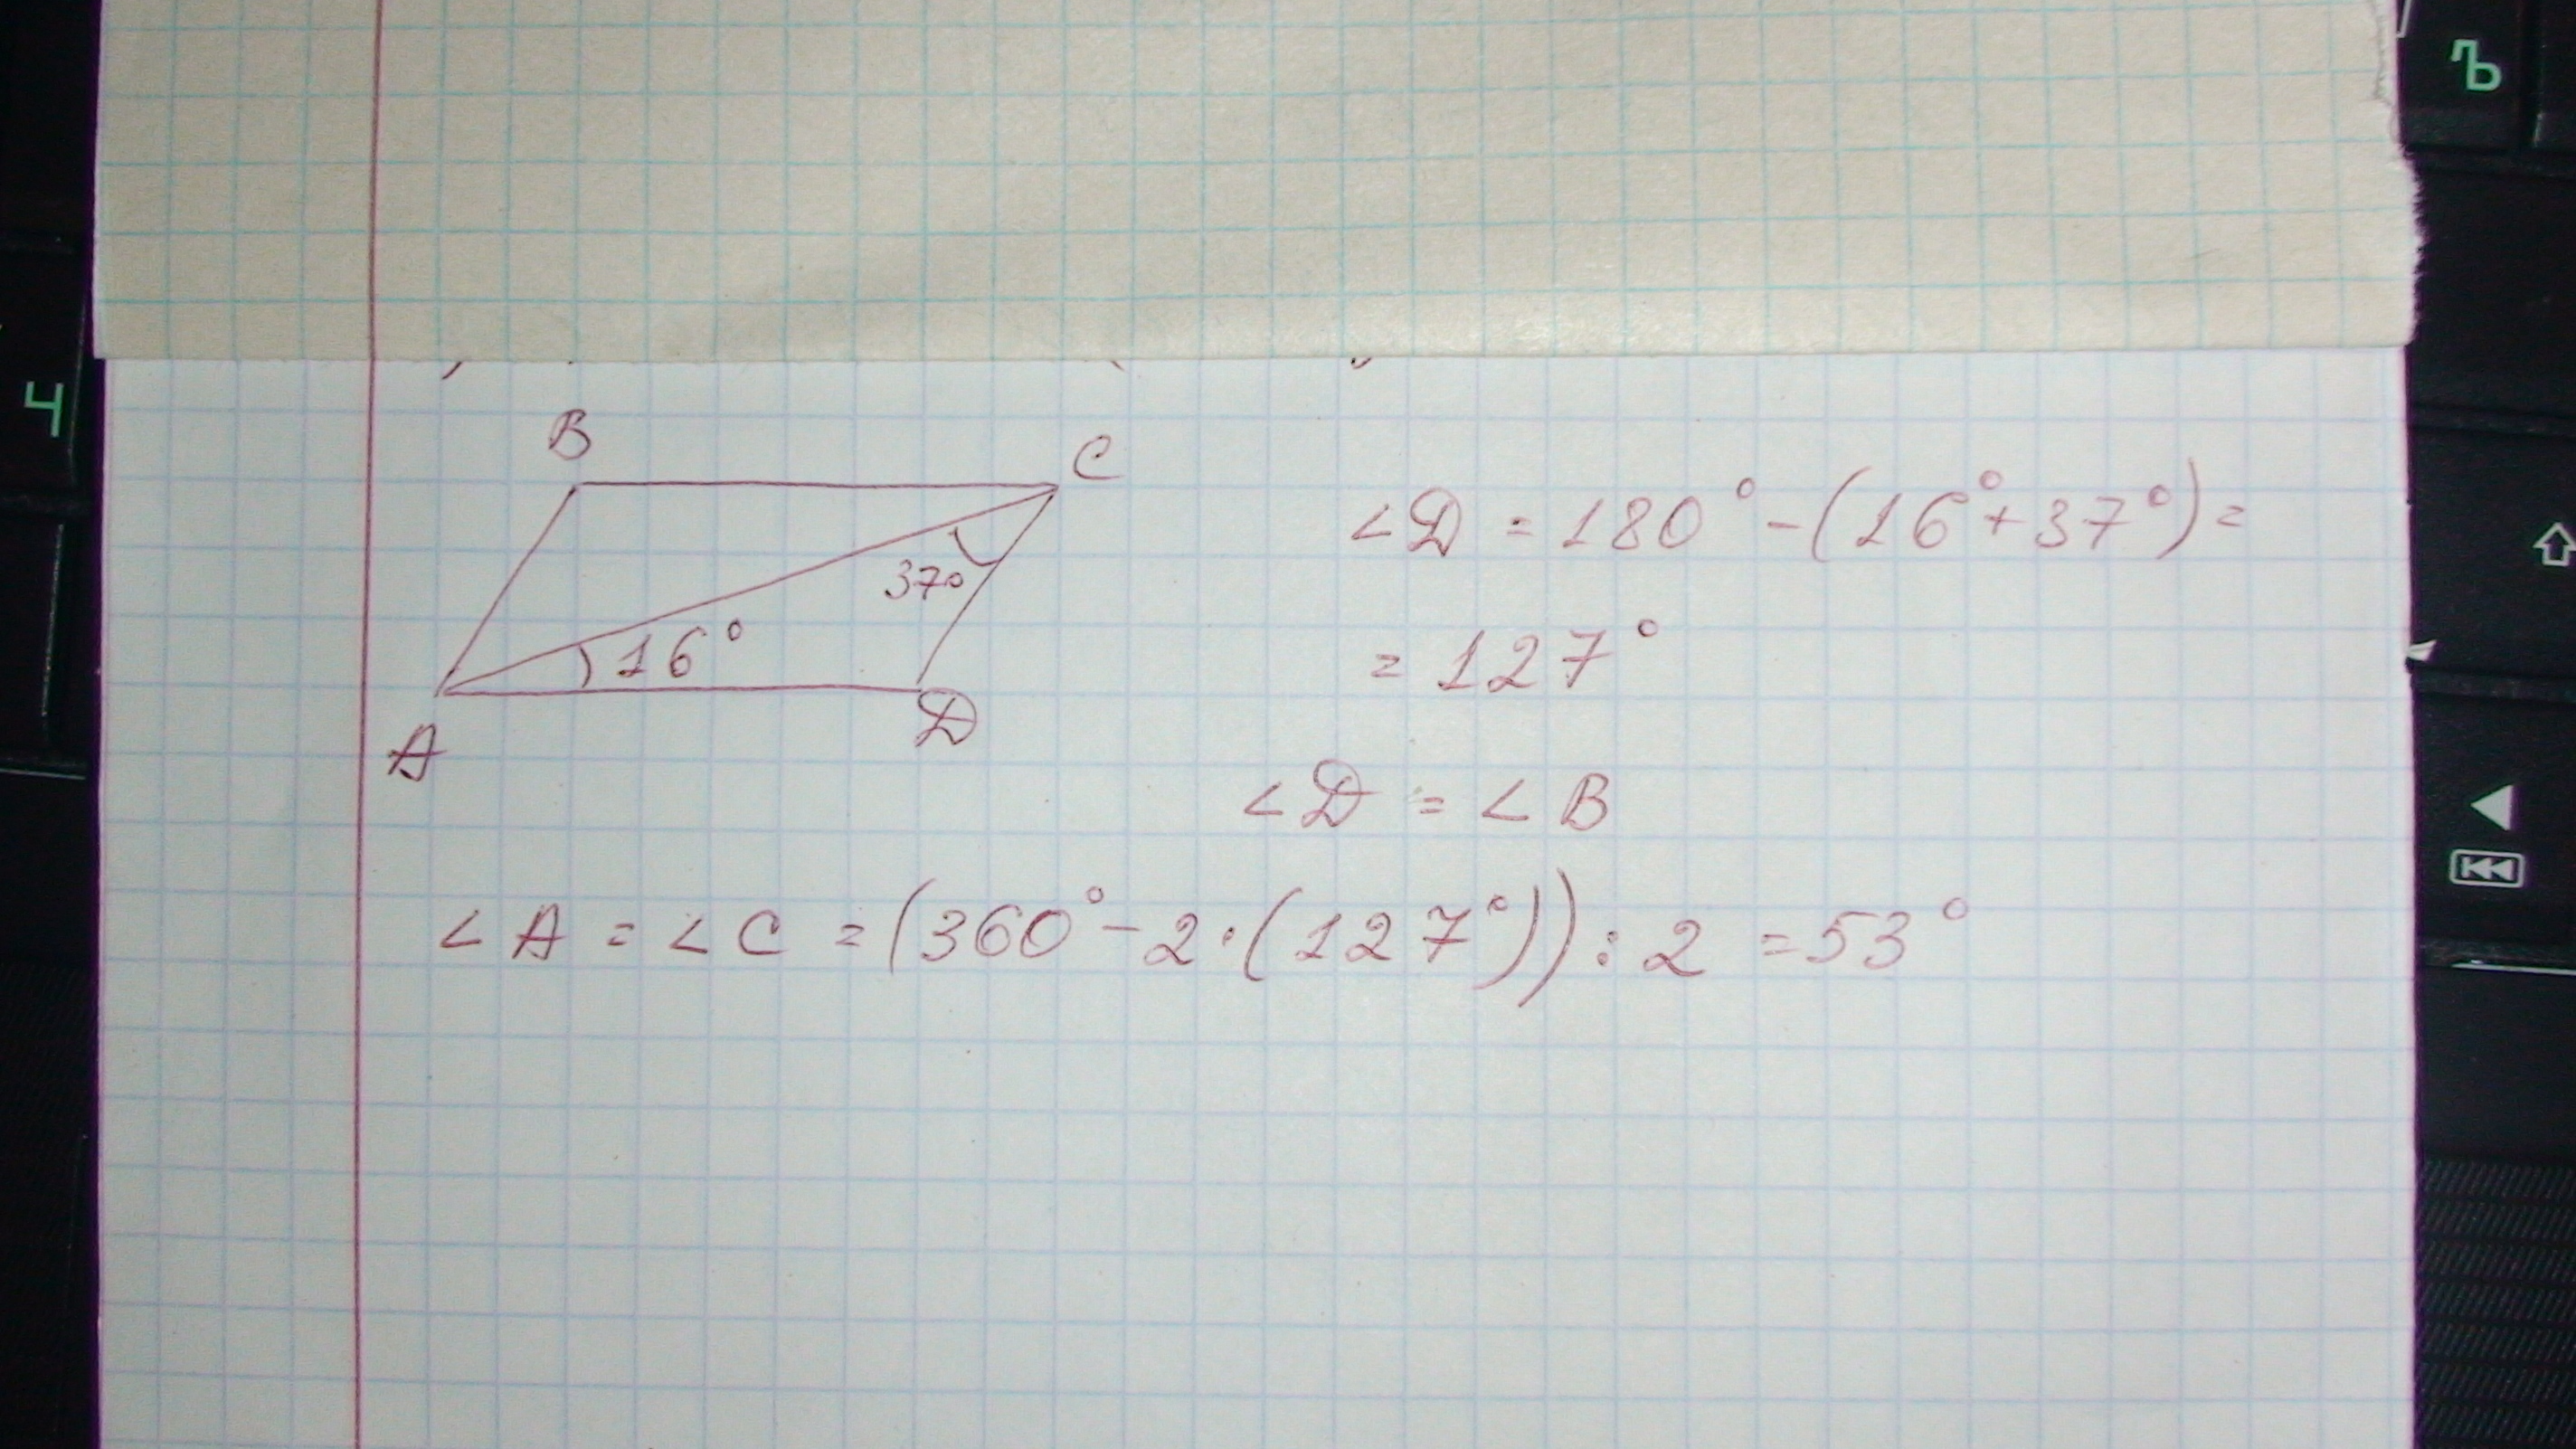 Ъ
Ч
B
C
37°
16°
A
D
∠D = 180° - (16° + 37°) =
= 127°
∠D = ∠B
∠A = ∠C = (360° - 2 · (127°)) : 2 = 53°